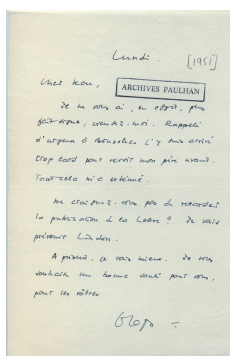 Lundi.
[1951]
Cher Jean,
ARCHIVES PAULHAN
Je ne vous ai, en effet, plus
fait signe, excusez-moi. Rappelé
d'urgence à Bruxelles j'y suis arrivé
trop tard pour revoir mon père vivant.
Tout cela m'a exténué.
Ne craignez-vous pas de retarder
la publication de la Lettre? Je vais
prévenir Lindon.
A présent, ça va mieux. Je vous
souhaite une bonne santé pour vous,
pour les vôtres